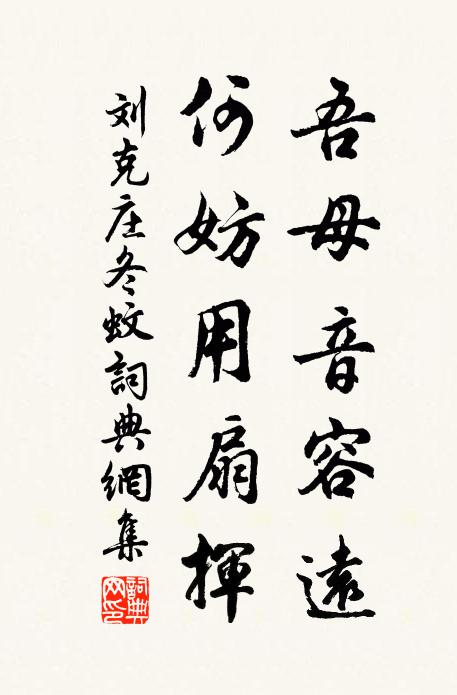 吾母音容遠
何妨用扇揮
刘克庄冬蚊詞典網集
詞典
网印